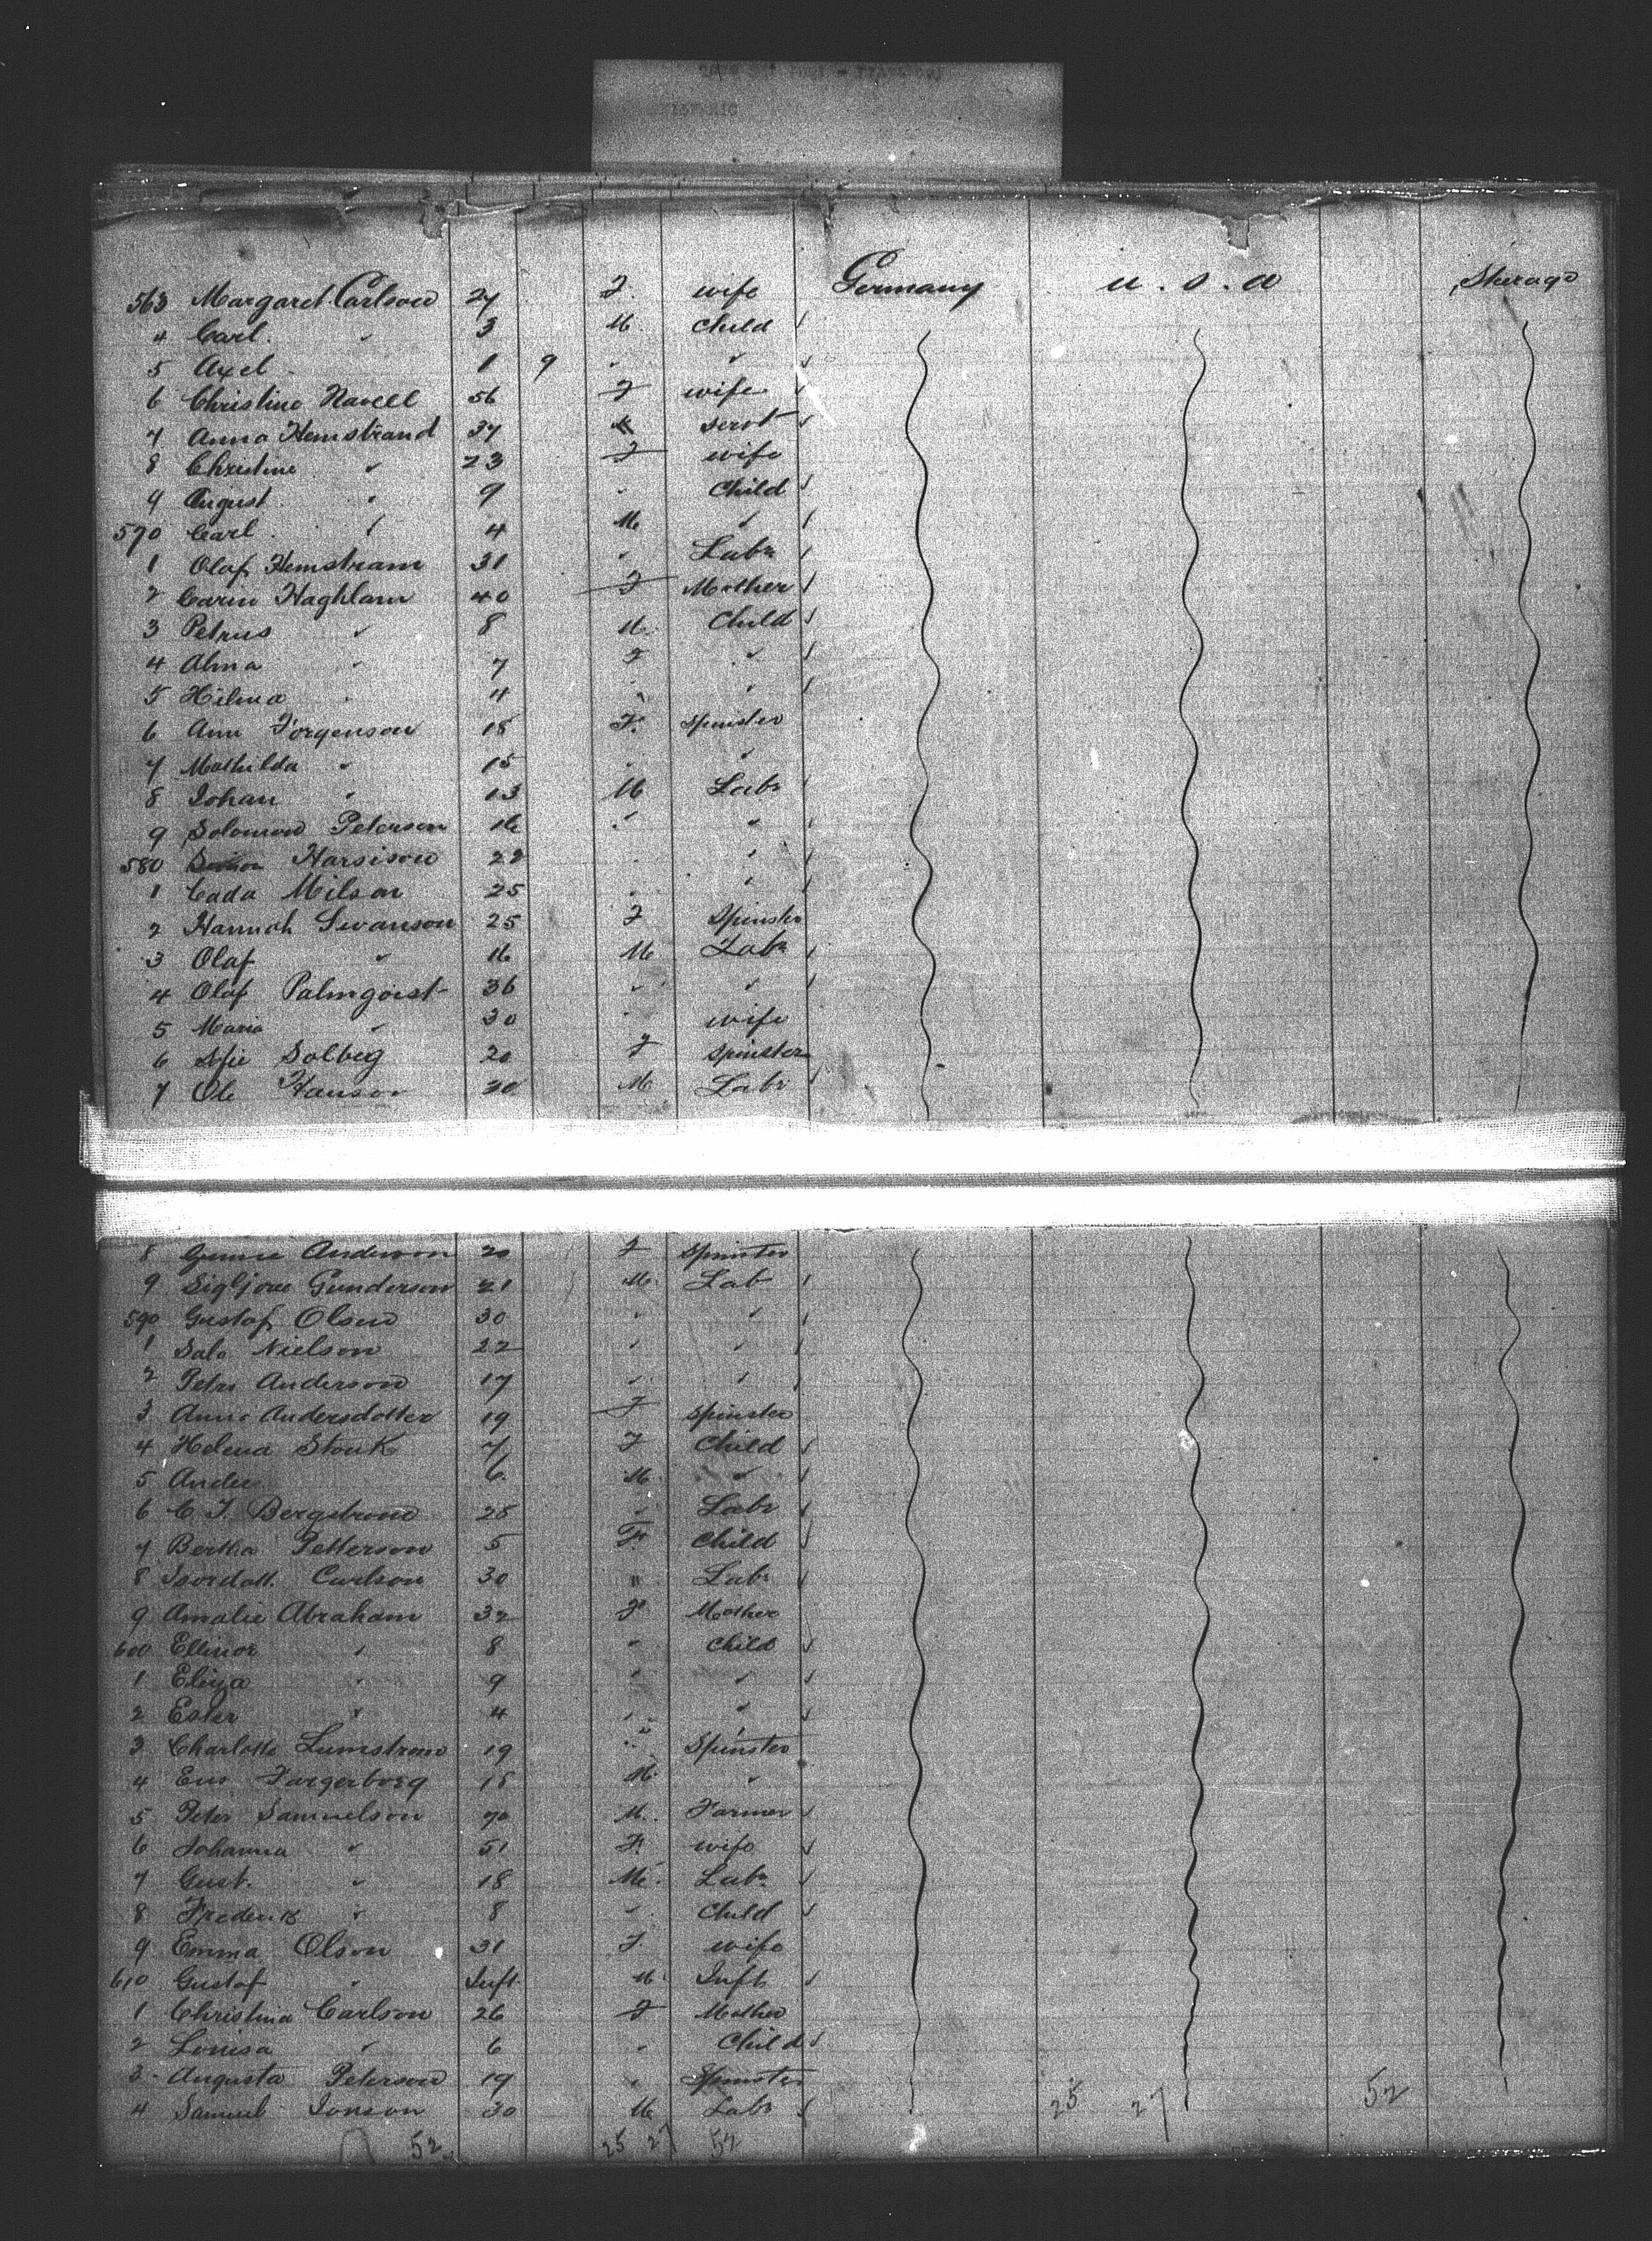 563 Margaret Carlson 27 F. wife Germany U.S.A Sterage
4 Carl " 3 M. Child
5 Axel 1 9 " "
6 Christine Navell 56 F wife
7 Anna Hemstrand 37 servt
8 Christine " 23 F wife
9 August " 9 " Child
570 Carl " 4 M "
1 Olaf Hemstram 31 " Labr
2 Carin Haghlam 40 F Mother
3 Petrus " 8 M. Child
4 Alma " 7 F "
5 Hilma " 4 " "
6 Ann Jorgenson 18 F. Spinster
7 Mathilda " 15 " "
8 Johan " 13 M Labr
9 Solomon Peterson 16 " "
580 Harsison 22 " "
1 Cada Milson 25 " "
2 Hannah Swanson 25 F Spinster
3 Olaf " 16 M Labr
4 Olaf Palmqoist 36 " "
5 Maria " 30 " wife
6 Solberg 20 F Spinster
7 Ole Hanson 30 M Labr
8 Anderson 20 F Spinster
9 Sigbjorn Gunderson 21 M. Lab
590 Gustaf Olsen 30 " "
1 Salo Nielson 22 " "
2 Petri Anderson 17 " "
3 Anna Andersdotter 19 F Spinster
4 Helena Stonk 7 F Child
5 Ander 6 M. "
6 C. J. Bergstrom 28 " Labr
7 Bertha Petterson 5 F. Child
8 Carlson 30 " Labr
9 Amalie Abraham 32 F Mother
600 Ellinor " 8 " Child
1 Eliza " 9 " "
2 Ester " 4 " "
3 Charlotte Lumstrom 19 " Spinster
4 Fargerborg 18 M. "
5 Peter Samuelson 70 M. Farmer
6 Johanna " 51 F. wife
7 Gust. " 18 M. Labr
8 Frederik " 8 " Child
9 Emma Olson 31 F. wife
610 Gustaf " Inft. M. Inft
1 Christina Carlson 26 F Mother
2 Louisa " 6 " Child
3 Augusta Peterson 19 " Spinster
4 Samuel Jonson 30 M Labr 25 27 52
52 25 27 52